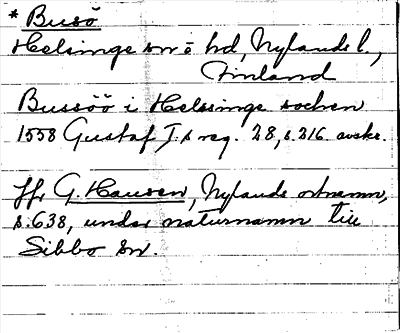 * Busö
Helsinge sn o hd, Nylands l.,
Finland
Bussöö i Helssinge sochen
1558 Gustaf I:s reg. 28, s. 216. avskr.
Jfr G. Hausen, Nylands ortnamn,
s. 638, under naturnamn till
Sibbo sn.